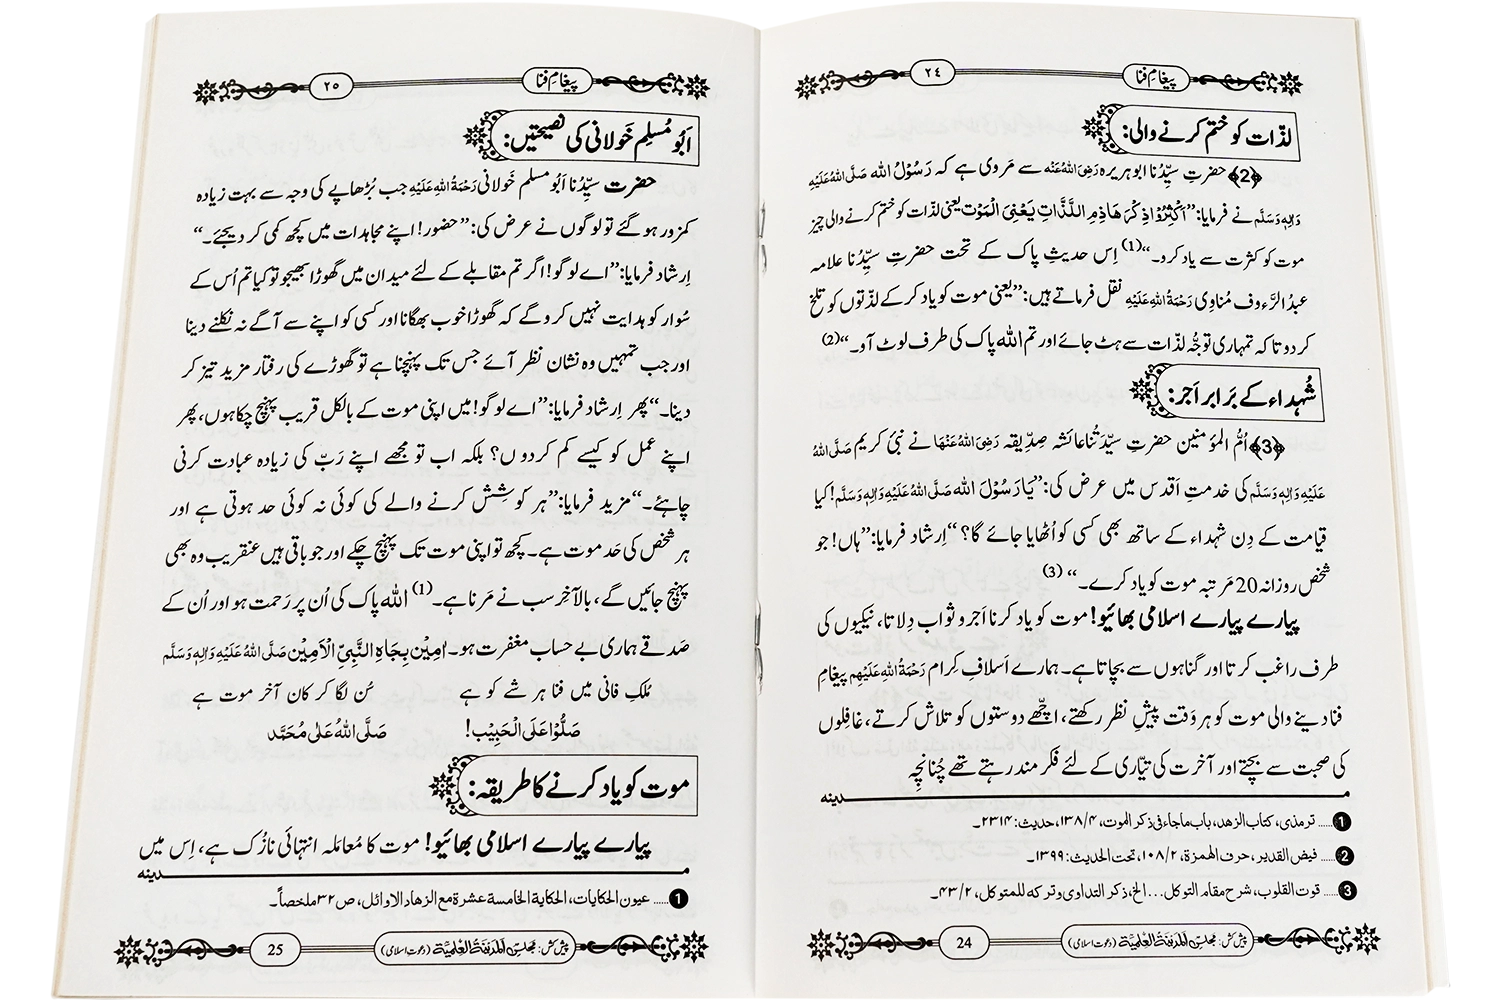 پیغامِ فنا
۲٤
لذّات کو ختم کرنے والی:
﴿2﴾ حضرتِ سیِّدُنا ابوہریرہ رَضِیَ اللہُ عَنْہ سے مَروی ہے کہ رَسُوْلُ اللہ صَلَّی اللہُ عَلَیْہِ
وَاٰلِہٖ وَسَلَّم نے فرمایا: ”اَکْثِرُوْا ذِکْرَ ھَاذِمِ اللَّذَّاتِ یَعْنِی الْمَوْت یعنی لذات کو ختم کرنے والی چیز
موت کو کثرت سے یاد کرو۔“(1) اِس حدیثِ پاک کے تحت حضرتِ سیِّدُنا علامہ
عبدُ الرَّءوف مُناوِی رَحْمَۃُ اللہِ عَلَیْہ نقل فرماتے ہیں: ”یعنی موت کو یاد کرکے لذّتوں کو تلخ
کردو تاکہ تمہاری توجُّہ لذّات سے ہٹ جائے اور تم اللہ پاک کی طرف لوٹ آؤ۔“(2)
شُہداء کے بَرابر اَجر:
﴿3﴾ اُمُّ المؤمنین حضرتِ سیِّدَتُنا عائشہ صِدِّیقہ رَضِیَ اللہُ عَنْہَا نے نبیِّ کریم صَلَّی اللہُ
عَلَیْہِ وَاٰلِہٖ وَسَلَّم کی خدمتِ اَقدس میں عرض کی: ”یَارَسُوْلَ اللہ صَلَّی اللہُ عَلَیْہِ وَاٰلِہٖ وَسَلَّم! کیا
قیامت کے دِن شہداء کے ساتھ بھی کسی کو اُٹھایا جائے گا؟“ اِرشاد فرمایا: ”ہاں! جو
شخص روزانہ 20 مَرتبہ موت کو یاد کرے۔“(3)
پیارے پیارے اسلامی بھائیو! موت کو یاد کرنا اَجر و ثواب دِلاتا، نیکیوں کی
طرف راغب کرتا اور گناہوں سے بچاتا ہے۔ ہمارے اَسلافِ کِرام رَحْمَۃُ اللہِ عَلَیْہِم پیغامِ
فنا دینے والی موت کو ہر وَقت پیشِ نظر رکھتے، اچھّے دوستوں کو تلاش کرتے، غافلوں
کی صحبت سے بچتے اور آخرت کی تیّاری کے لئے فکر مند رہتے تھے چُنانچِہ
مدینہ
1 ..... ترمذی، کتاب الزھد، باب ماجاء فی ذکر الموت، ۴/۱۳۸، حدیث: ۲۳۱۴۔
2 ..... فیض القدیر، حرف الھمزۃ، ۲/۱۰۸، تحت الحدیث: ۱۳۹۹۔
3 ..... قوت القلوب، شرح مقام التوکل...الخ، ذکر التداوی وترکہ للمتوکل، ۲/۴۳۔
پیش کش: مجلس المدینۃ العلمیۃ (دعوتِ اسلامی)
24
پیغامِ فنا
۲۵
اَبُو مُسلِم خَولانی کی نصیحتیں:
حضرتِ سیِّدُنا اَبُو مسلم خَولانی رَحْمَۃُ اللہِ عَلَیْہ جب بُڑھاپے کی وجہ سے بہت زیادہ
کمزور ہوگئے تو لوگوں نے عرض کی: ”حضور! اپنے مجاہدات میں کچھ کمی کر دیجئے۔“
اِرشاد فرمایا: ”اے لوگو! اگر تم مقابلے کے لئے میدان میں گھوڑا بھیجو تو کیا تم اُس کے
سُوار کو ہدایت نہیں کرو گے کہ گھوڑا خوب بھگانا اور کسی کو اپنے سے آگے نہ نکلنے دینا
اور جب تمہیں وہ نشان نظر آئے جس تک پہنچنا ہے تو گھوڑے کی رفتار مزید تیز کر
دینا۔“ پھر اِرشاد فرمایا: ”اے لوگو! میں اپنی موت کے بالکل قریب پہنچ چکا ہوں، پھر
اپنے عمل کو کیسے کم کردوں؟ بلکہ اب تو مجھے اپنے رَبّ کی زیادہ عبادت کرنی
چاہئے۔“ مزید فرمایا: ”ہر کوشِش کرنے والے کی کوئی نہ کوئی حد ہوتی ہے اور
ہر شخص کی حَد موت ہے۔ کچھ تو اپنی موت تک پہنچ چکے اور جو باقی ہیں عنقریب وہ بھی
پہنچ جائیں گے، بالآخِر سب نے مَرنا ہے۔(1) اللہ پاک کی اُن پر رَحمت ہو اور اُن کے
صَدقے ہماری بے حساب مغفرت ہو۔ اٰمِیْن بِجَاہِ النَّبِیِّ الْاَمِیْن صَلَّی اللہُ عَلَیْہِ وَاٰلِہٖ وَسَلَّم
مُلکِ فانی میں فنا ہر شے کو ہے سُن لگا کر کان آخر موت ہے
صَلُّوْا عَلَی الْحَبِیْب! صَلَّی اللہُ عَلٰی مُحَمَّد
موت کو یاد کرنے کا طریقہ:
پیارے پیارے اسلامی بھائیو! موت کا مُعامَلہ انتہائی نازُک ہے، اِس میں
مدینہ
1 ..... عیون الحکایات، الحکایۃ الخامسۃ عشرۃ مع الزھاد الاوائل، ص۳۲ ملخصاً۔
پیش کش: مجلس المدینۃ العلمیۃ (دعوتِ اسلامی)
25